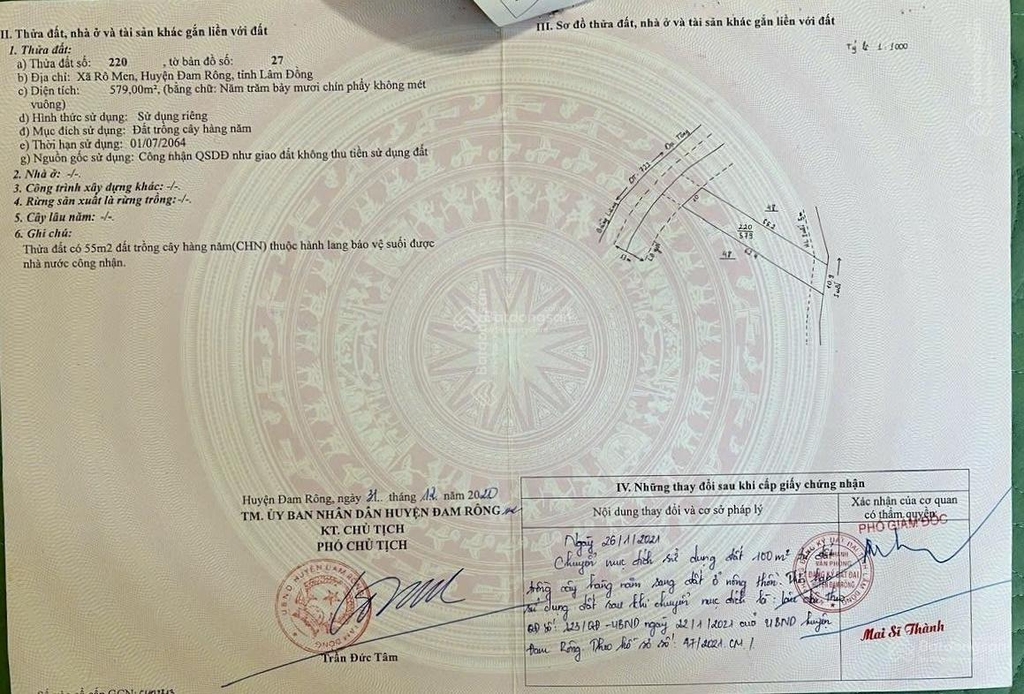 II. Thửa đất, nhà ở và tài sản khác gắn liền với đất
1. Thửa đất:
a) Thửa đất số: 220 , tờ bản đồ số: 27
b) Địa chỉ: Xã Rô Men, Huyện Đam Rông, tỉnh Lâm Đồng
c) Diện tích: 579,00m², (bằng chữ: Năm trăm bảy mươi chín phẩy không mét
vuông)
d) Hình thức sử dụng: Sử dụng riêng
đ) Mục đích sử dụng: Đất trồng cây hàng năm
e) Thời hạn sử dụng: 01/07/2064
g) Nguồn gốc sử dụng: Công nhận QSDĐ như giao đất không thu tiền sử dụng đất
2. Nhà ở: -/-.
3. Công trình xây dựng khác: -/-.
4. Rừng sản xuất là rừng trồng: -/-.
5. Cây lâu năm: -/-.
6. Ghi chú:
Thửa đất có 55m2 đất trồng cây hàng năm(CHN) thuộc hành lang bảo vệ suối được
nhà nước công nhận.
Huyện Đam Rông, ngày 31 tháng 12 năm 2020
TM. ỦY BAN NHÂN DÂN HUYỆN ĐAM RÔNG
KT. CHỦ TỊCH
PHÓ CHỦ TỊCH
Trần Đức Tâm
III. Sơ đồ thửa đất, nhà ở và tài sản khác gắn liền với đất
Tỷ lệ 1:1000
ĐT 722
48
220
579
48
Suối
IV. Những thay đổi sau khi cấp giấy chứng nhận
Nội dung thay đổi và cơ sở pháp lý
Xác nhận của cơ quan
có thẩm quyền
PHÓ GIÁM ĐỐC
Ngày 26/11/2021
Chuyển mục đích sử dụng đất 100m² từ đất
trồng cây hàng năm sang đất ở nông thôn. Thời hạn
sử dụng đất sau khi chuyển mục đích là: lâu dài theo
QĐ số: 323/QĐ-UBND ngày 22/11/2021 của UBND huyện
Đam Rông. Theo hồ sơ số: 47/2021.CM./
Mai Sĩ Thành
Batdongsan